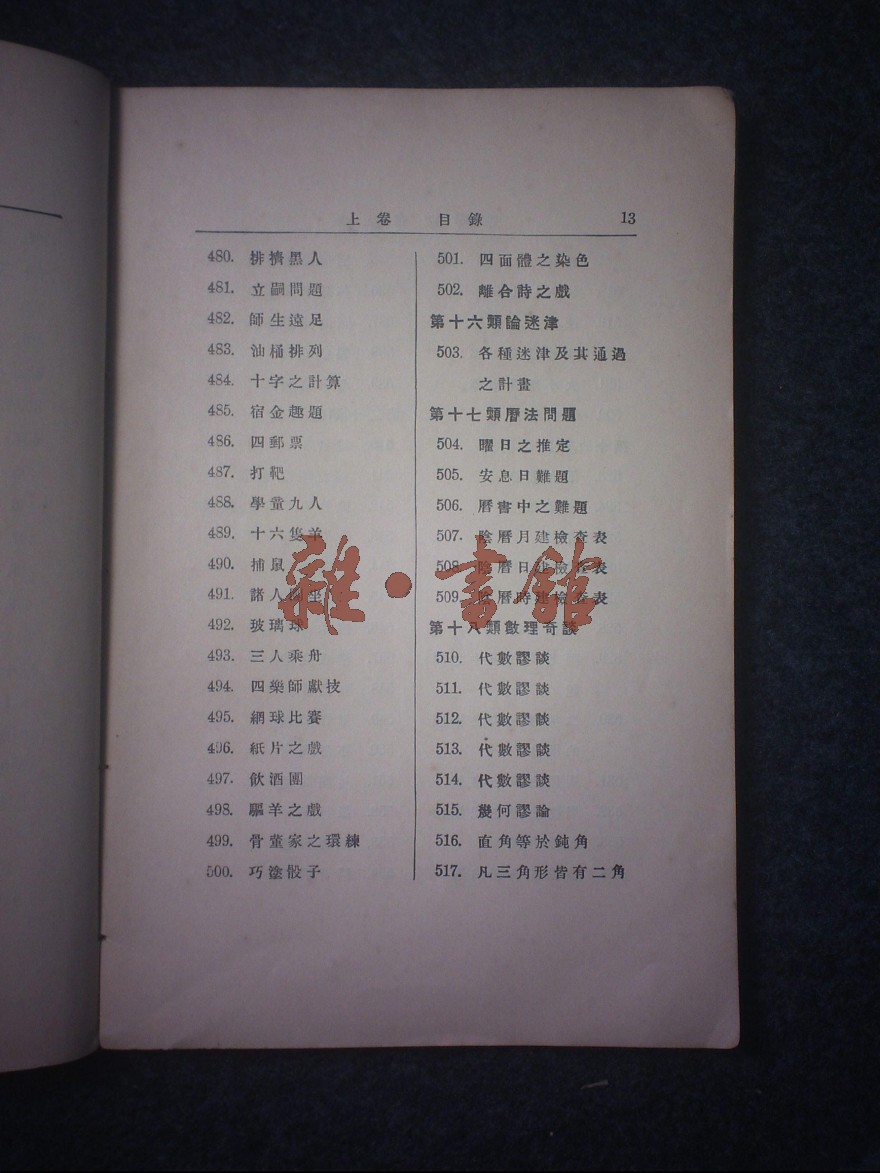 上卷 目錄 13
480. 排擠黑人
481. 立嗣問題
482. 師生遠足
483. 油桶排列
484. 十字之計算
485. 宿金趣題
486. 四郵票
487. 打靶
488. 學童九人
489. 十六隻羊
490. 捕鼠
491. 諸人圍坐
492. 玻璃球
493. 三人乘舟
494. 四樂師獻技
495. 網球比賽
496. 紙片之戲
497. 飲酒團
498. 驅羊之戲
499. 骨董家之環練
500. 巧塗骰子
501. 四面體之染色
502. 離合詩之戲
第十六類論迷津
503. 各種迷津及其通過
之計畫
第十七類曆法問題
504. 曜日之推定
505. 安息日難題
506. 曆書中之難題
507. 陰曆月建檢查表
508. 陰曆日建檢查表
509. 陰曆時建檢查表
第十八類數理奇談
510. 代數謬談
511. 代數謬談
512. 代數謬談
513. 代數謬談
514. 代數謬談
515. 幾何謬論
516. 直角等於鈍角
517. 凡三角形皆有二角
雜·書館